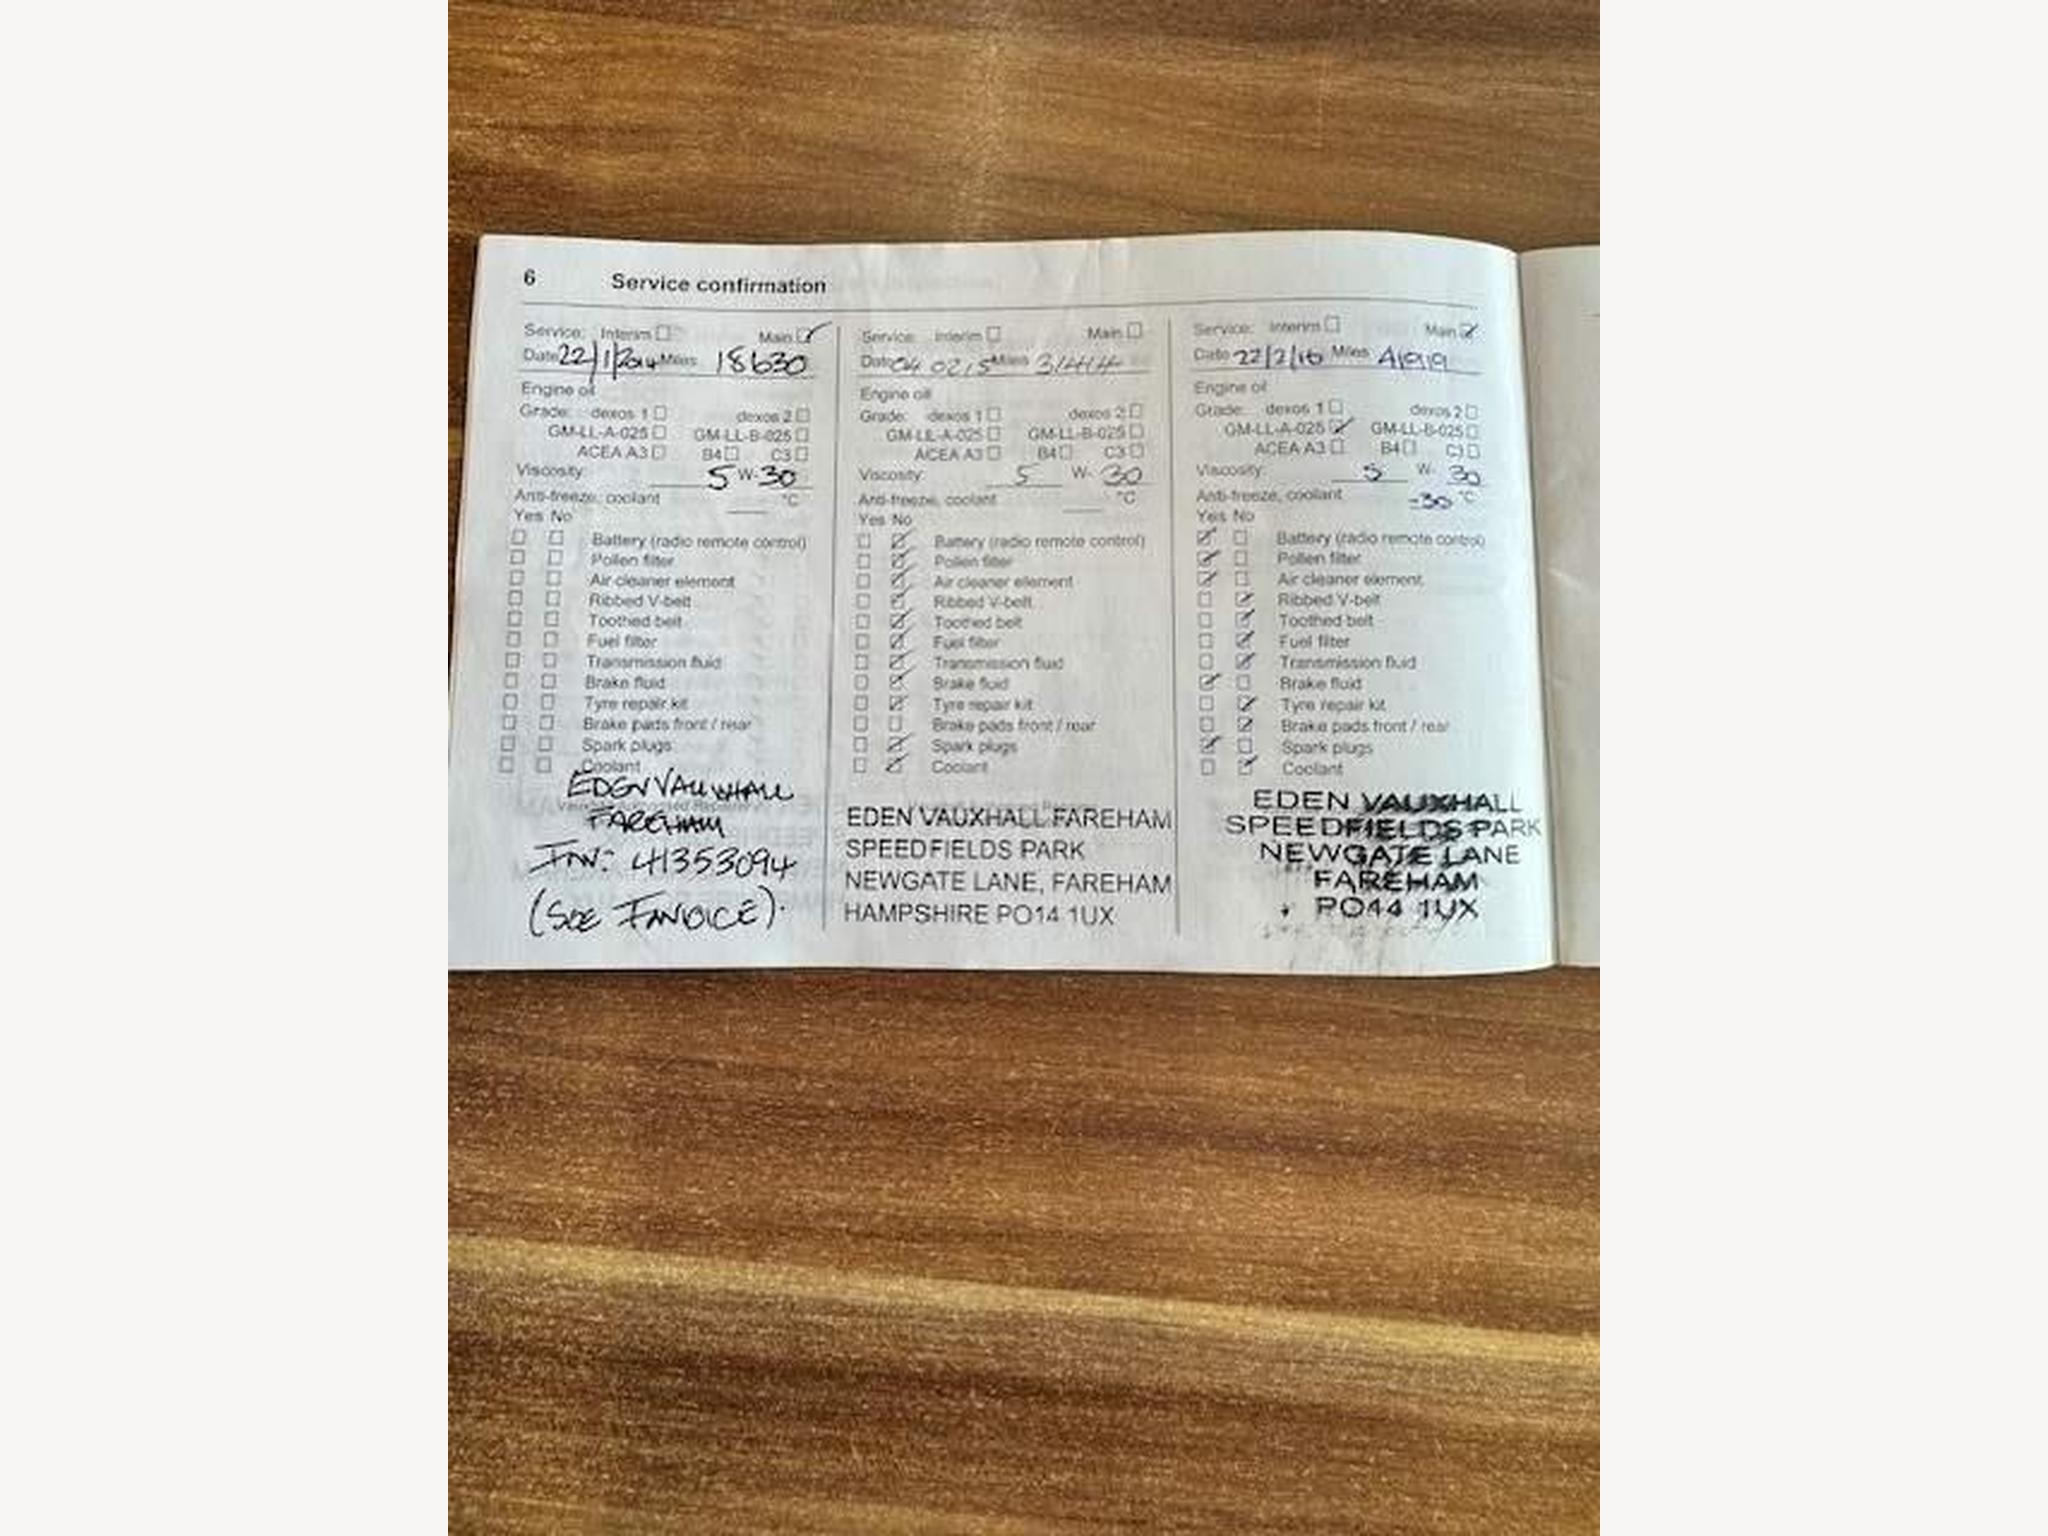 6 Service confirmation
Service: Interim Main
Date 22/1/2014 Miles 18630
Engine oil
Grade: dexos 1 dexos 2
GM-LL-A-025 GM-LL-B-025
ACEA A3 B4 C3
Viscosity: 5 W- 30
Anti-freeze, coolant °C
Yes No
Battery (radio remote control)
Pollen filter
Air cleaner element
Ribbed V-belt
Toothed belt
Fuel filter
Transmission fluid
Brake fluid
Tyre repair kit
Brake pads front / rear
Spark plugs
Coolant
EDEN VAUXHALL
FAREHAM
INV: 41353094
(SEE INVOICE).
Service: Interim Main
Date 04 02 15 Miles 31444
Engine oil
Grade: dexos 1 dexos 2
GM-LL-A-025 GM-LL-B-025
ACEA A3 B4 C3
Viscosity: 5 W- 30
Anti-freeze, coolant °C
Yes No
Battery (radio remote control)
Pollen filter
Air cleaner element
Ribbed V-belt
Toothed belt
Fuel filter
Transmission fluid
Brake fluid
Tyre repair kit
Brake pads front / rear
Spark plugs
Coolant
EDEN VAUXHALL FAREHAM
SPEEDFIELDS PARK
NEWGATE LANE, FAREHAM
HAMPSHIRE PO14 1UX
Service: Interim Main
Date 22/2/16 Miles 41919
Engine oil
Grade: dexos 1 dexos 2
GM-LL-A-025 GM-LL-B-025
ACEA A3 B4 C3
Viscosity: 5 W- 30
Anti-freeze, coolant -30 °C
Yes No
Battery (radio remote control)
Pollen filter
Air cleaner element
Ribbed V-belt
Toothed belt
Fuel filter
Transmission fluid
Brake fluid
Tyre repair kit
Brake pads front / rear
Spark plugs
Coolant
EDEN VAUXHALL
SPEEDFIELDS PARK
NEWGATE LANE
FAREHAM
PO14 1UX